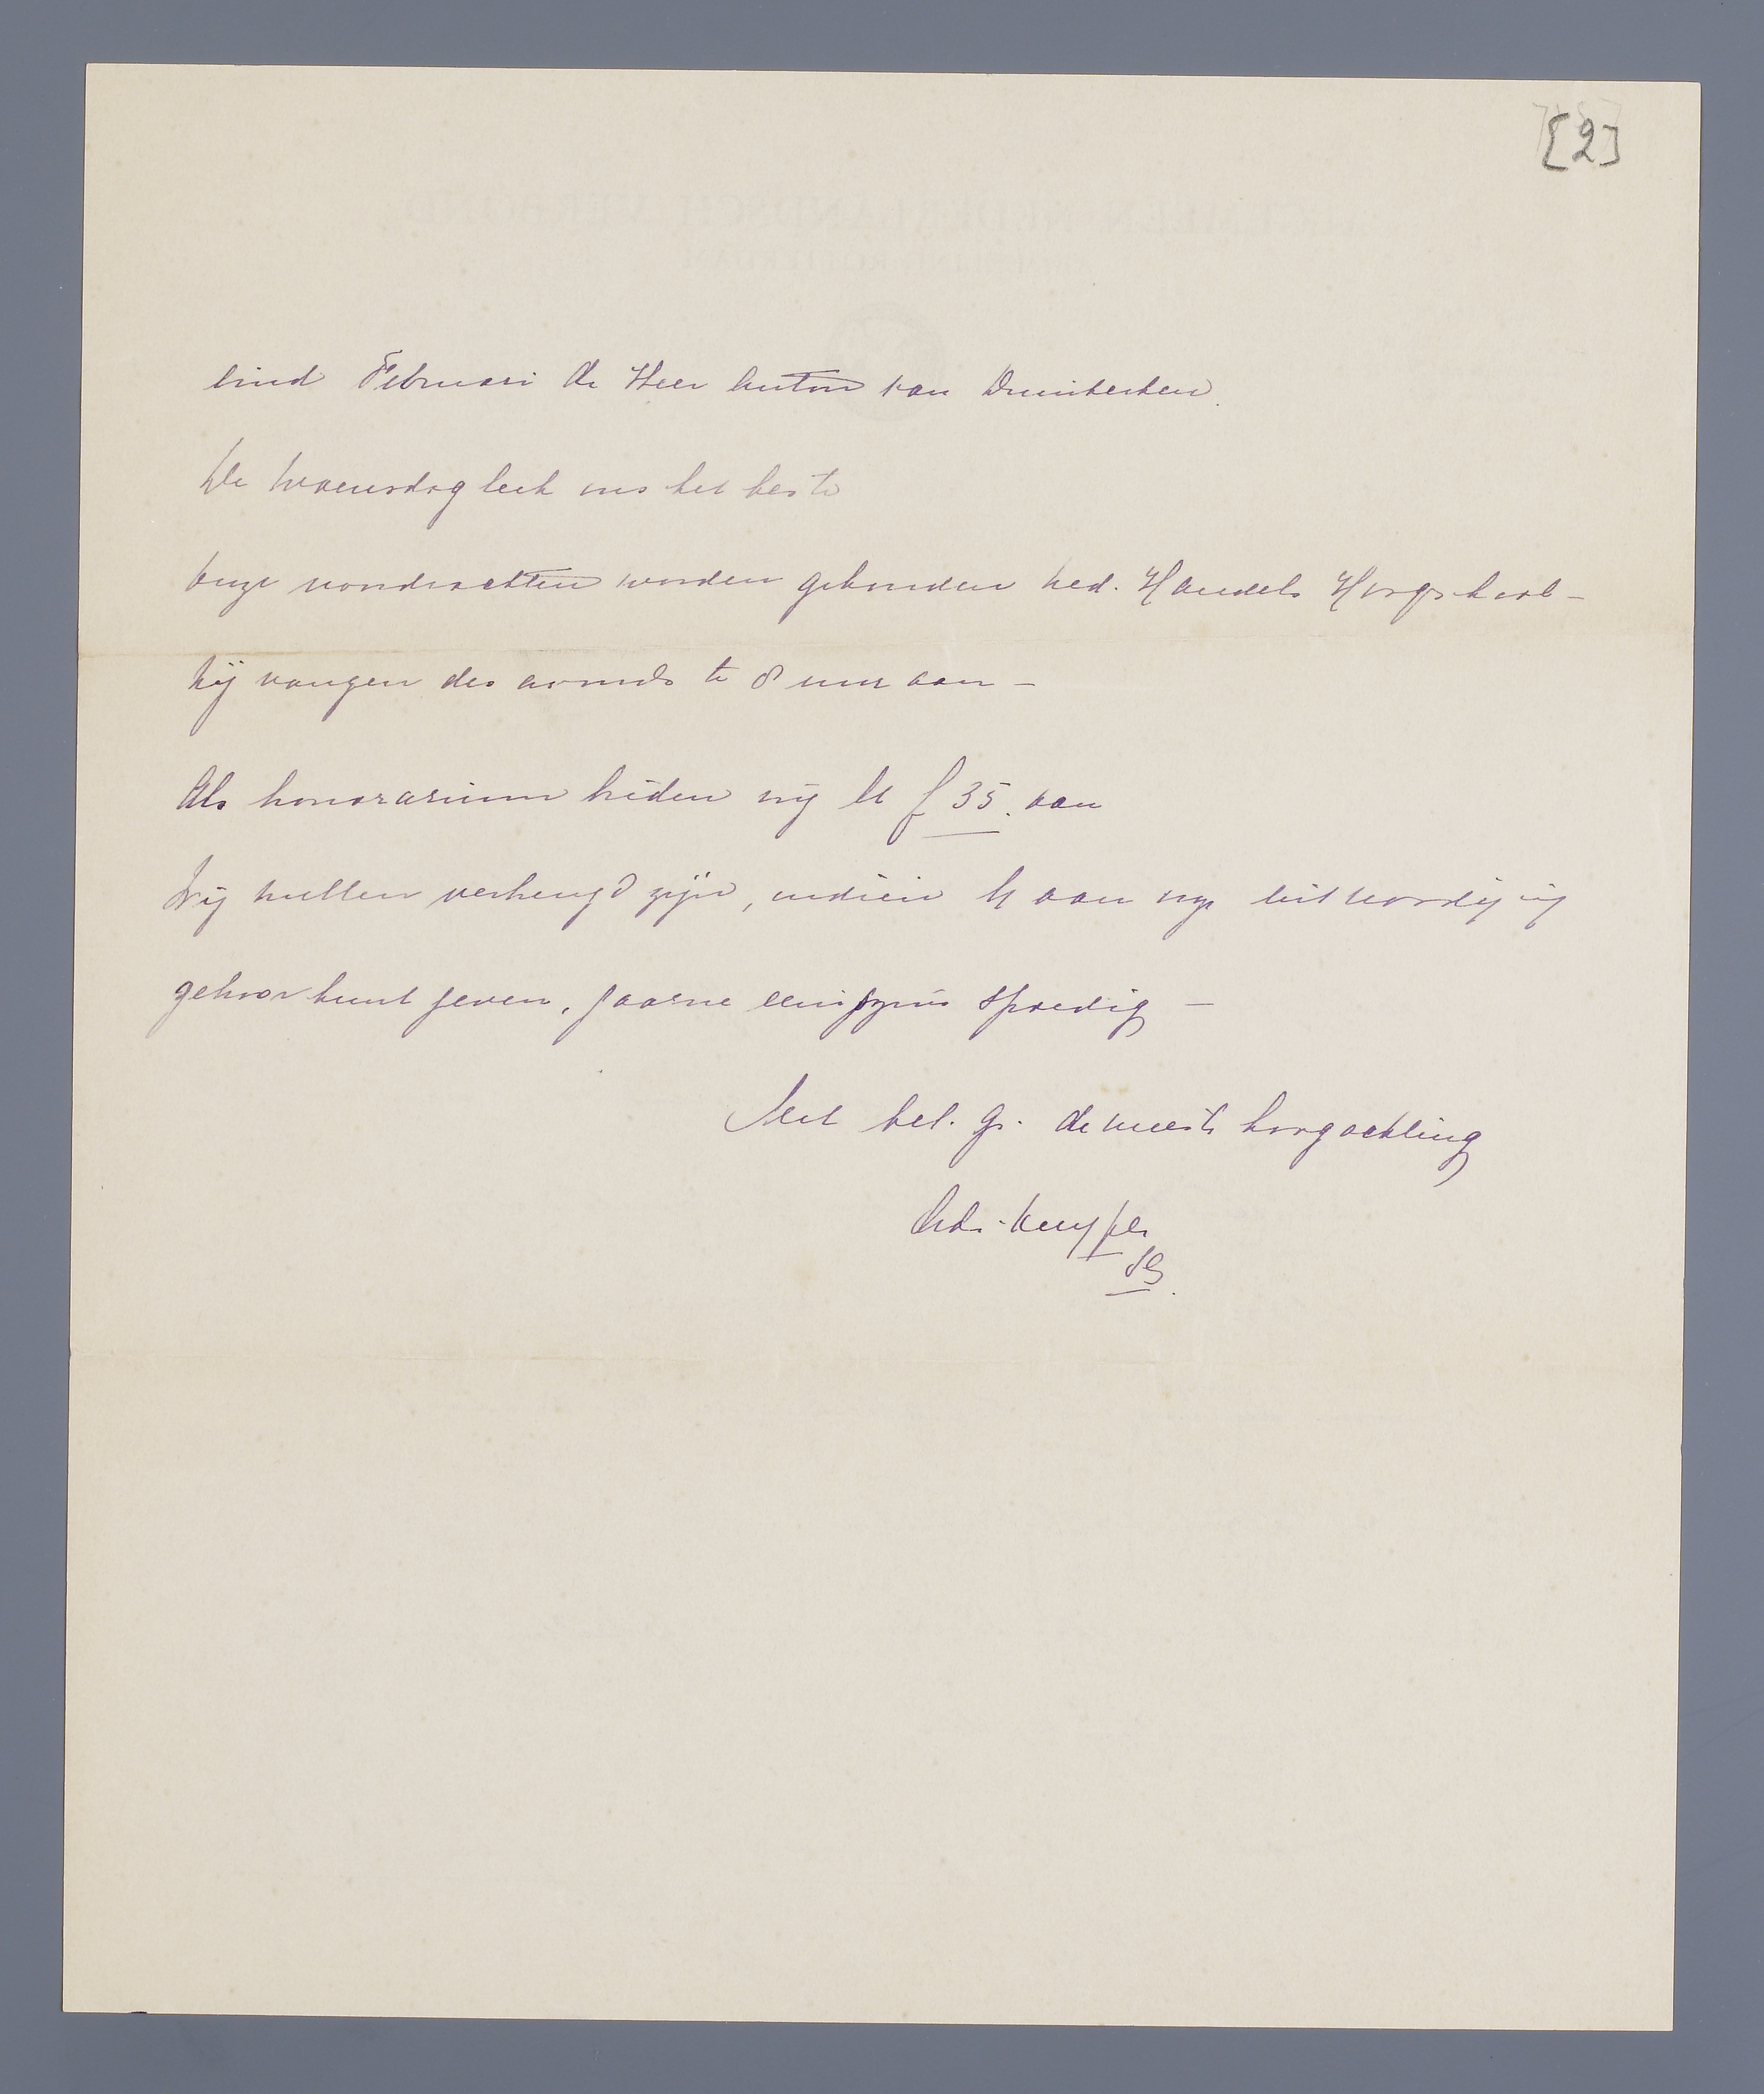 [2]
eind Februari de Heer Anton van Duinkerken.
De Woensdag leek ons het beste
Onze voordrachten worden gehouden Ned. Handels Hoogeschool –
Zij vangen des avonds te 8 uur aan –
Als honorarium bieden wij U f 35. aan
Wij zullen verheugd zijn, indien U aan onze uitnoodiging
gehoor kunt geven, gaarne eenigszins spoedig –
Met bel. gr. de meeste hoogachting
Adr. Kuyper